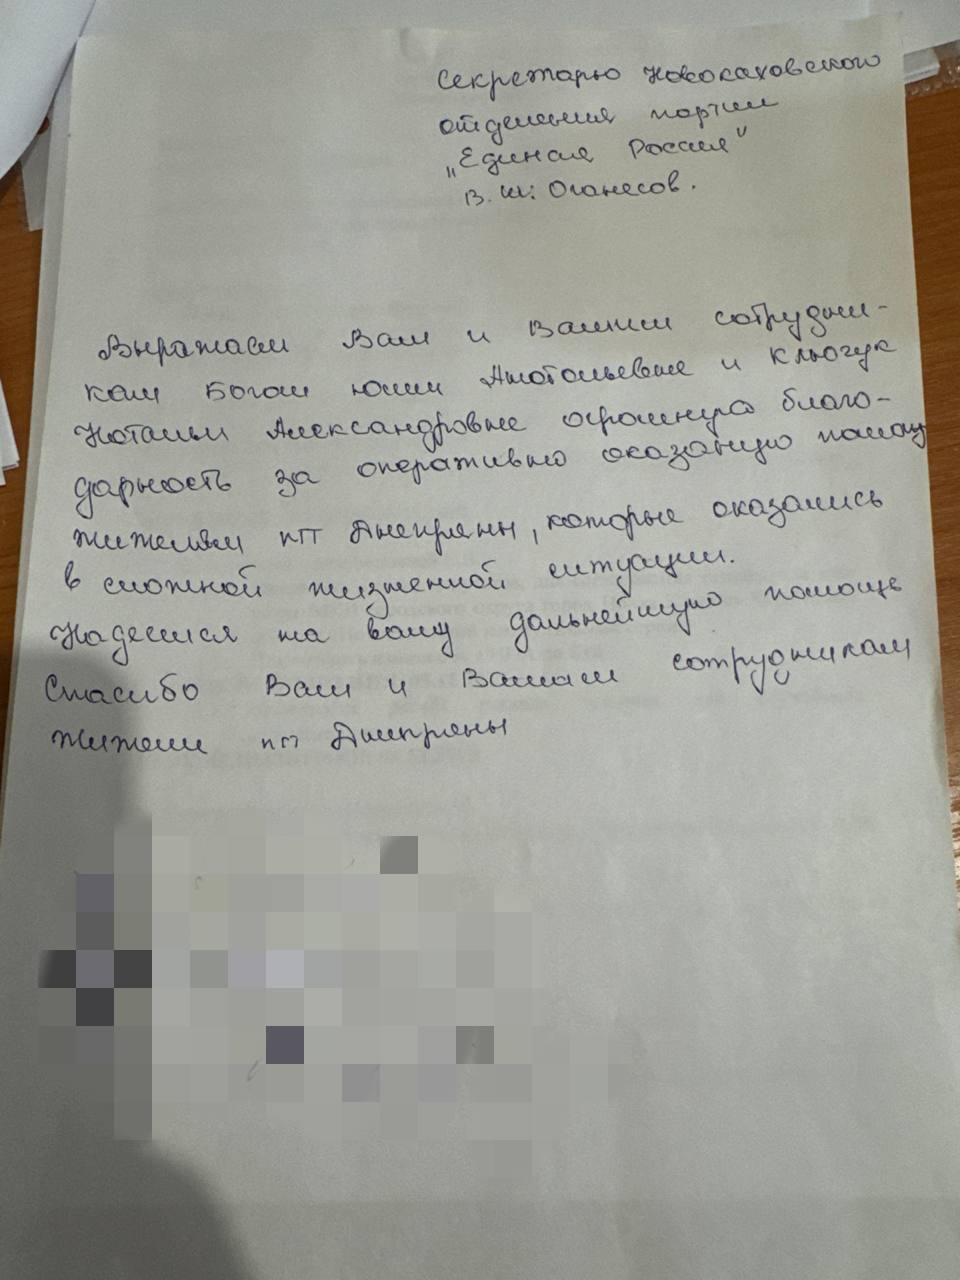 Секретарю Новокаховского
отделения партии
„Единая Россия"
В. Ш. Оганесов.
Выражаем Вам и Вашим сотрудни-
кам Богаш Юлии Анатольевне и Ключук
Натальи Александровне огромную благо-
дарность за оперативно оказаную помощ
жителям пгт Днепряны, которые оказались
в сложной жизненной ситуации.
Надеемся на вашу дальнейшую помощь
Спасибо Вам и Вашим сотрудникам
жители пгт Днепряны